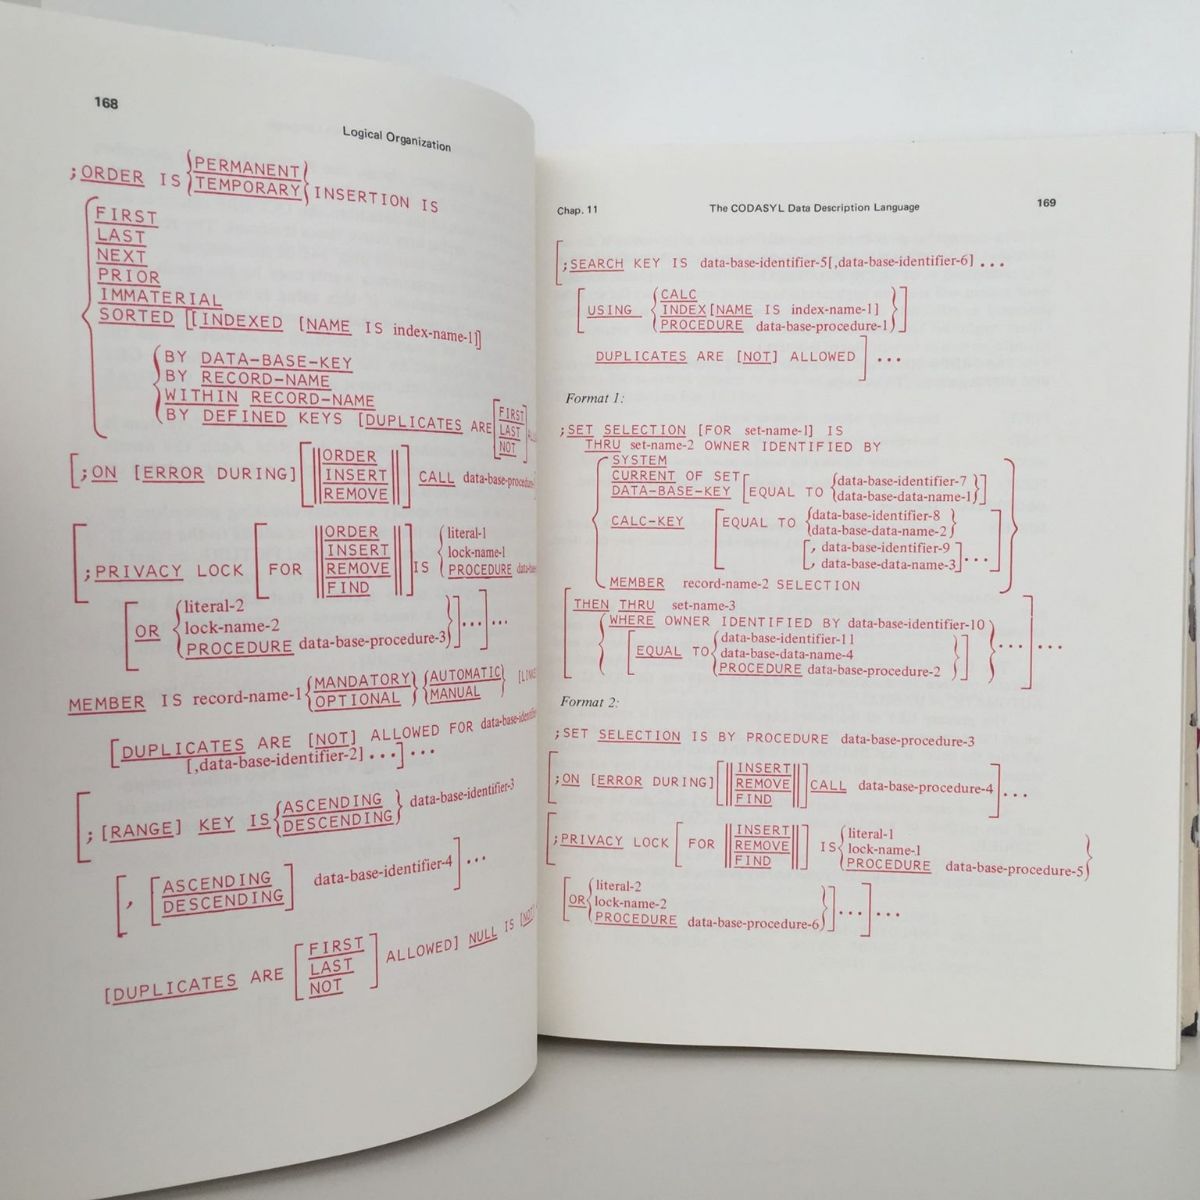 168
Logical Organization
;ORDER IS {PERMANENT
TEMPORARY} INSERTION IS
{FIRST
LAST
NEXT
PRIOR
IMMATERIAL
SORTED [[INDEXED [NAME IS index-name-1]]
{BY DATA-BASE-KEY
BY RECORD-NAME
WITHIN RECORD-NAME
BY DEFINED KEYS [DUPLICATES ARE [FIRST
LAST
NOT]
[;ON [ERROR DURING] [||ORDER
INSERT
REMOVE||] CALL data-base-procedure-
[;PRIVACY LOCK [FOR ||ORDER
INSERT
REMOVE
FIND||] IS {literal-1
lock-name-1
PROCEDURE
[OR {literal-2
lock-name-2
PROCEDURE data-base-procedure-3}]...]...
MEMBER IS record-name-1 {MANDATORY
OPTIONAL} {AUTOMATIC
MANUAL}
[DUPLICATES ARE [NOT] ALLOWED FOR
[,data-base-identifier-2]...]...
[;[RANGE] KEY IS {ASCENDING
DESCENDING} data-base-identifier-3
[, [ASCENDING
DESCENDING] data-base-identifier-4]...
[DUPLICATES ARE [FIRST
LAST
NOT] ALLOWED] NULL IS [NOT]
Chap. 11 The CODASYL Data Description Language 169
[;SEARCH KEY IS data-base-identifier-5[,data-base-identifier-6]...
[USING {CALC
INDEX[NAME IS index-name-1]
PROCEDURE data-base-procedure-1}]
DUPLICATES ARE [NOT] ALLOWED]...
Format 1:
;SET SELECTION [FOR set-name-1] IS
THRU set-name-2 OWNER IDENTIFIED BY
{SYSTEM
CURRENT OF SET
DATA-BASE-KEY [EQUAL TO {data-base-identifier-7
data-base-data-name-1}]
CALC-KEY [EQUAL TO {data-base-identifier-8
data-base-data-name-2}
[, data-base-identifier-9
, data-base-data-name-3]...]
MEMBER record-name-2 SELECTION}
[THEN THRU set-name-3
{WHERE OWNER IDENTIFIED BY data-base-identifier-10
[EQUAL TO {data-base-identifier-11
data-base-data-name-4
PROCEDURE data-base-procedure-2}]}...]...
Format 2:
;SET SELECTION IS BY PROCEDURE data-base-procedure-3
[;ON [ERROR DURING] [||INSERT
REMOVE
FIND||] CALL data-base-procedure-4]...
[;PRIVACY LOCK [FOR ||INSERT
REMOVE
FIND||] IS {literal-1
lock-name-1
PROCEDURE data-base-procedure-5}
[OR {literal-2
lock-name-2
PROCEDURE data-base-procedure-6}]...]...